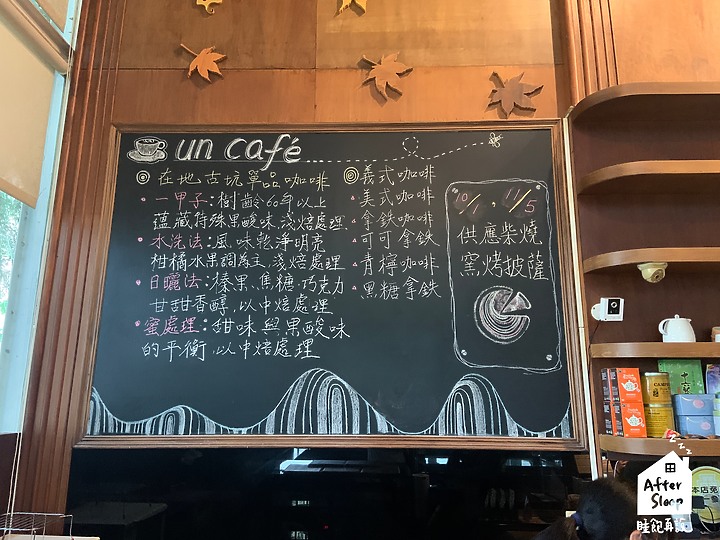 un café
◎在地古坑單品咖啡
• 一甲子:樹齡60年以上
蘊藏特殊果酸味,淺焙處理
• 水洗法:風味乾淨明亮
柑橘水果調為主,淺焙處理
• 日曬法:榛果、焦糖、巧克力
甘甜香醇,以中焙處理
• 蜜處理:甜味與果酸味
的平衡,以中焙處理
◎義式咖啡
• 美式咖啡
• 拿鐵咖啡
• 可可拿鐵
• 青檸咖啡
• 黑糖拿鐵
10/1、11/5
供應柴燒
窯烤披薩
本店免
zzz
After
Sleep
睡飽再說